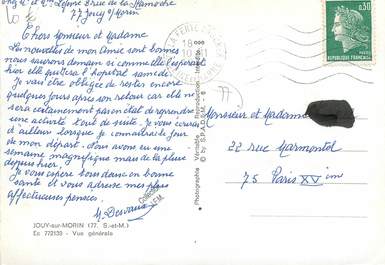 chez Mr et Mme Lefèvre Brise de la Hamoche
77 Jouy s/ Morin
Chers Monsieur et Madame
Les nouvelles de mon Amie sont bonnes
nous saurons demain si comme elle l'espérait
hier elle quittera l'hopital samedi
Je vais être obligée de rester encore
quelques jours après son retour car elle ne
sera certainement pas en état de reprendre
une activité tout de suite. Je vous écrirai
d'ailleurs lorsque je connaîtrai le jour
de mon départ. Nous avons eu une
semaine magnifique mais de la pluie
depuis hier.
Je vous espère tous deux en bonne
santé et vous adresse mes plus
affectueuses pensées.
M. Desvaux
JOUY-sur-MORIN (77. S.-et-M.)
Ec 772133 - Vue générale
Photographie Véritable - Reproduction Interdite
© by S.P.A.D.E.M.
LA FERTE-GAUCHER
18 H
0,30
REPUBLIQUE FRANÇAISE
POSTES
77
Monsieur et Madame
22 rue Marmontel
75 Paris XVème